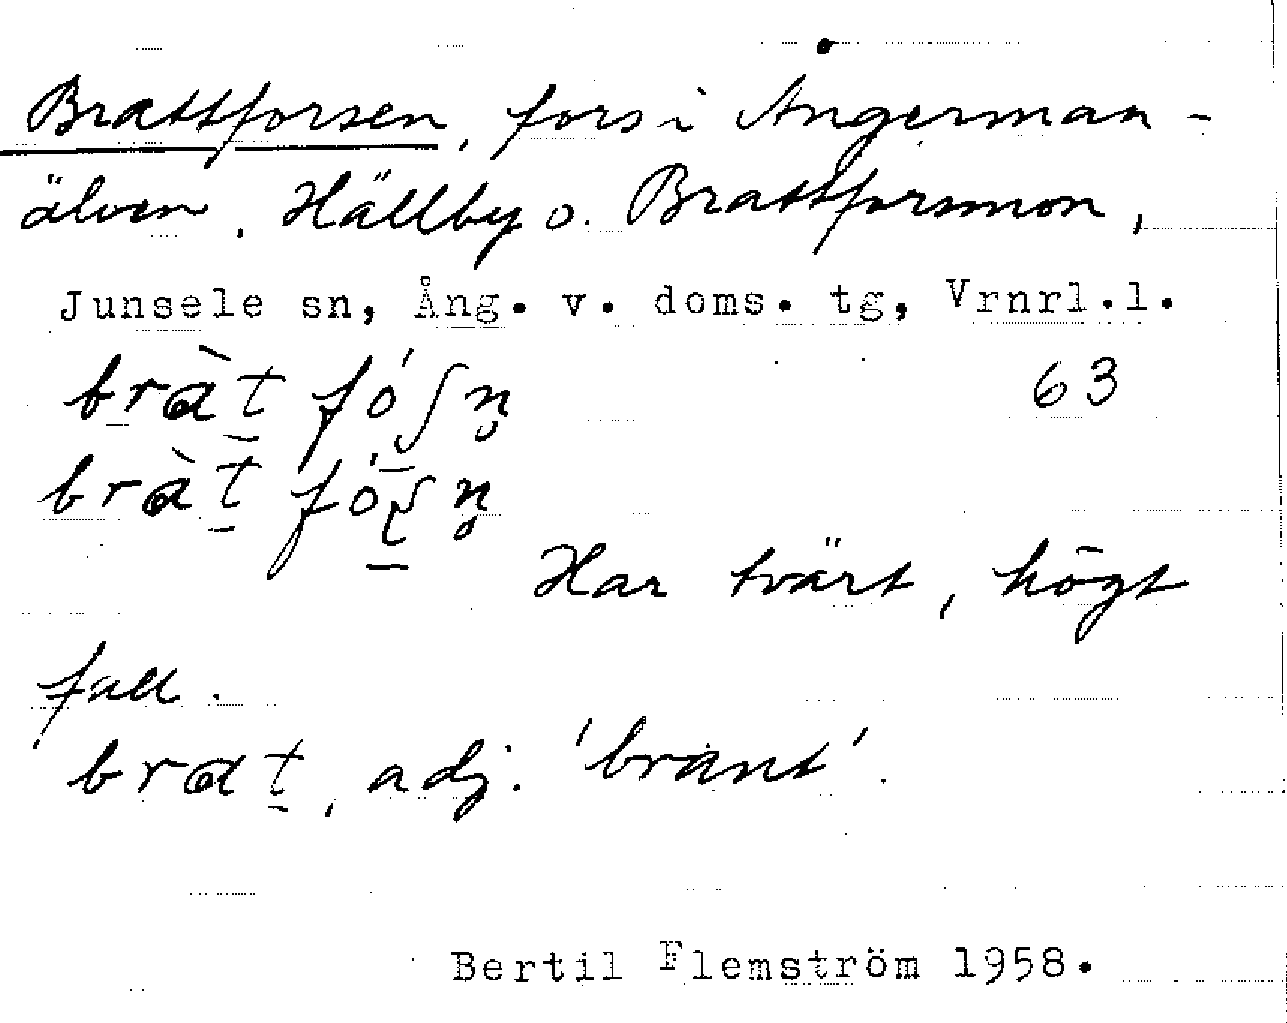 Brattforsen, fors i Ångerman-
älven. Hällby o. Brattforsmon,
Junsele sn, Ång. v. doms. tg, Vrnrl.l.
bràt̠ fó̠ʃn̥ 63
bràt̠ fó̠ʂn̥
Har tvärt, högt
fall.
brat̠, adj. 'brant'.
Bertil Flemström 1958.